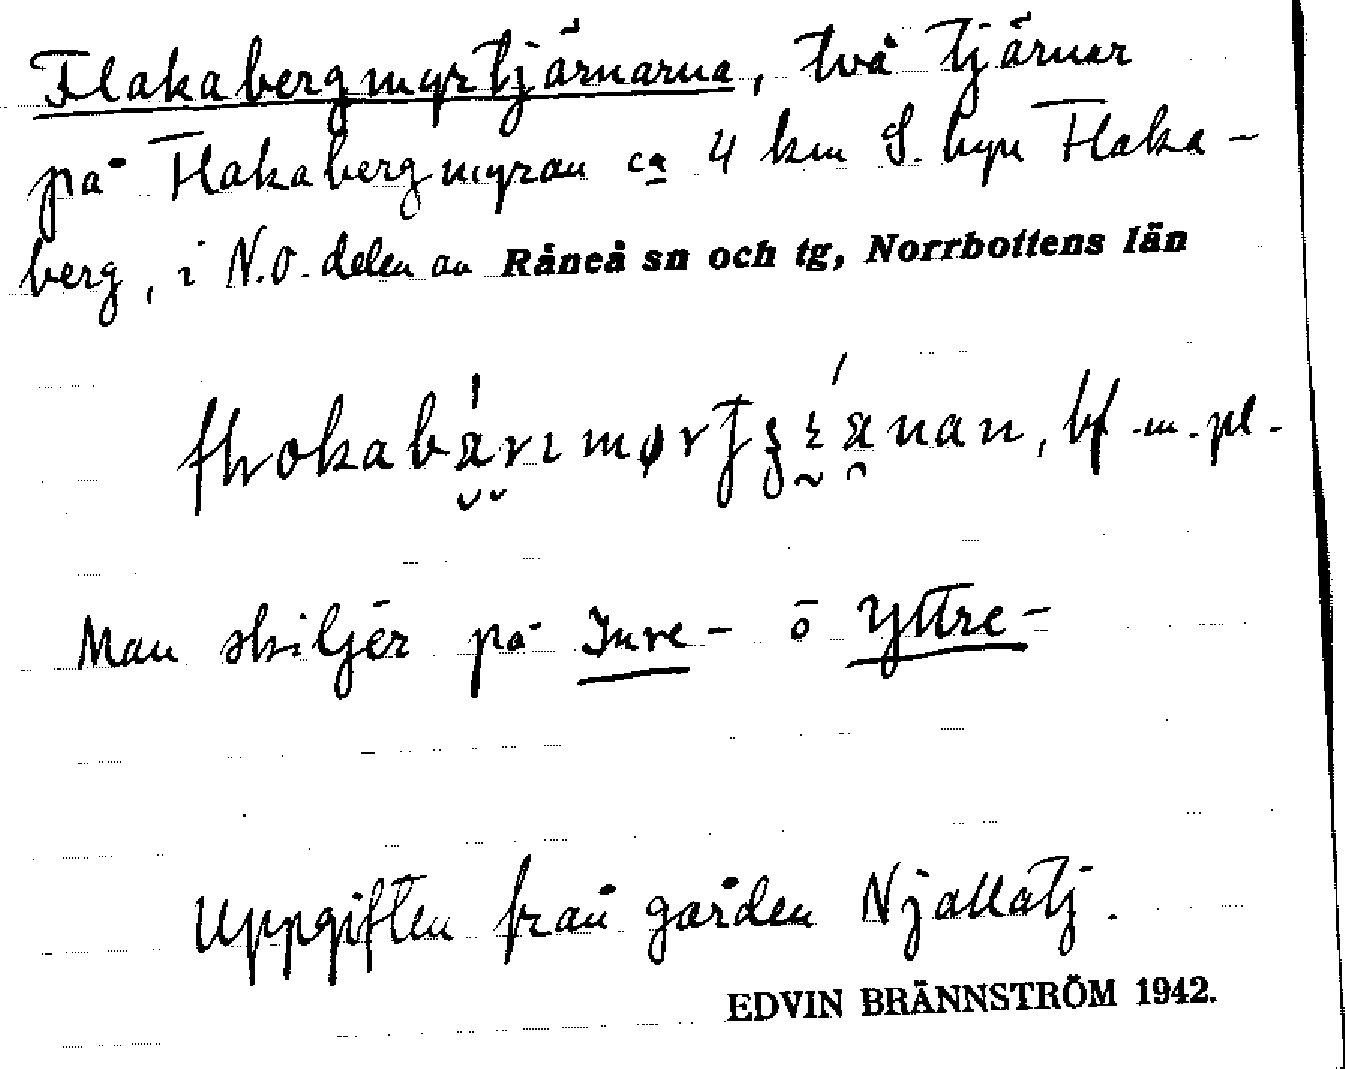 Flakabergmyrtjärnarna, två tjärnar
på Flakabergmyran ca 4 km S. byn Flaka-
berg, i N.O. delen av Råneå sn och tg, Norrbottens län
bf. m. pl.
Man skiljer på Inre- o Yttre-
Uppgiften från gården Njallatj.
EDVIN BRÄNNSTRÖM 1942.